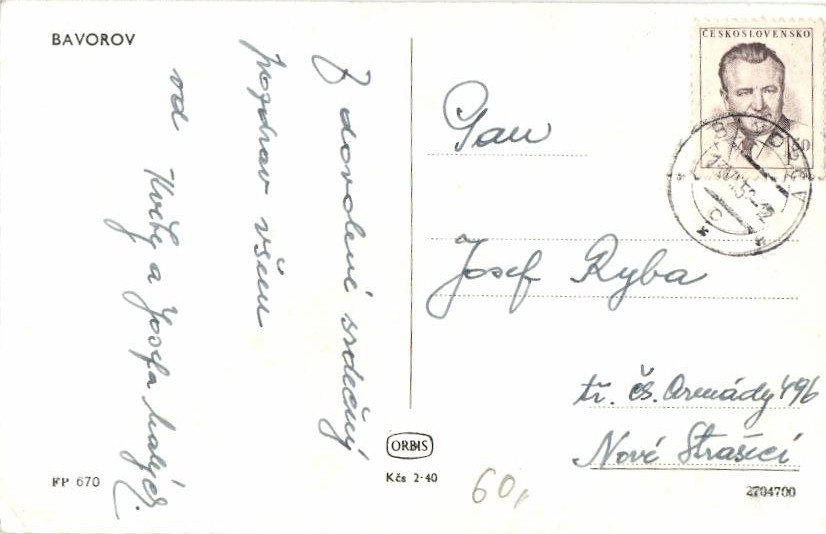 BAVOROV
Z dovolené srdečný
pozdrav všem
od Květy a Josefa
Pan
Josef Ryba
tř. čs. Armády 496
Nové Strašecí
ČESKOSLOVENSKO
ORBIS
Kčs 2·40
FP 670
60,
2704700